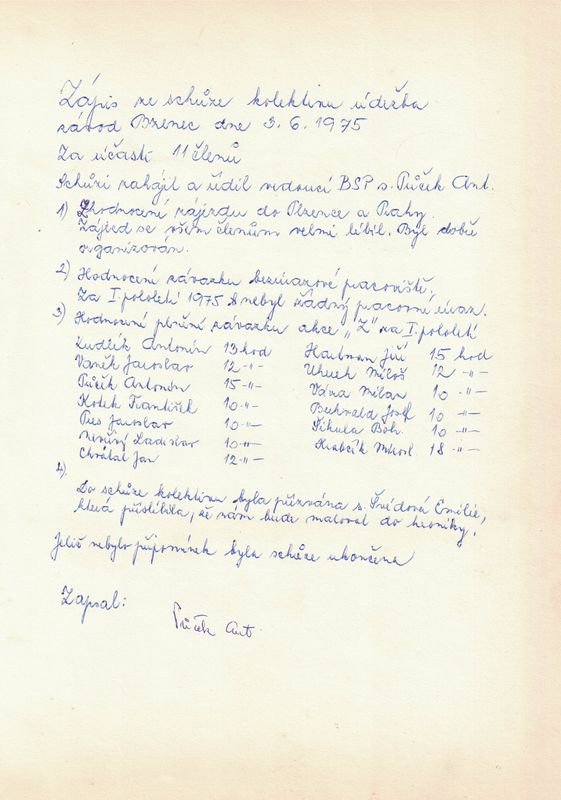 Zápis ze schůze kolektivu údržba
závod Bzenec dne 3.6.1975
Za účasti 11 členů
Schůzi zahájil a řídil vedoucí BSP s. Půček Ant.
1) Zhodnocení zájezdu do Plzence a Prahy.
Zájezd se všem členům velmi líbil. Byl dobře
organizován.
2) Hodnocení závazku bezúrazové pracoviště.
Za I. pololetí 1975 nebyl žádný pracovní úraz.
3) Hodnocení plnění závazku akce „Z" za I. pololetí
Antonín 13 hod Hauman Jiří 15 hod
Vaněk Jaroslav 12 -"- Uhrek Miloš 12 -"-
Půček Antonín 15 -"- Vána Milan 10 -"-
Kotek František 10 -"- Buchvald Josef 10 -"-
Pres Jaroslav 10 -"- Šikula Boh. 10 -"-
Ladislav 10 -"- Hrabčík 18 -"-
Chrátal Jan 12 -"-
4)
Do schůze kolektivu byla přizvána s. Švédová Emilie,
která přislíbila, že nám bude malovat do kroniky.
Jelik nebylo připomínek byla schůze ukončena
Zapsal:
Půček Ant.